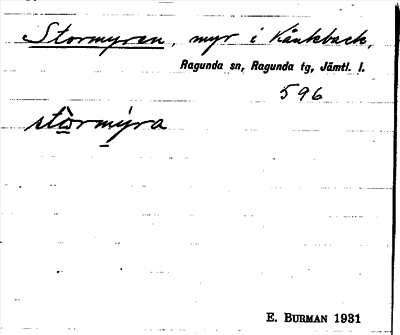 Stormyren, myr i Kånkback,
Ragunda sn, Ragunda tg, Jämtl. l.
596
stòrmýra
E. BURMAN 1931